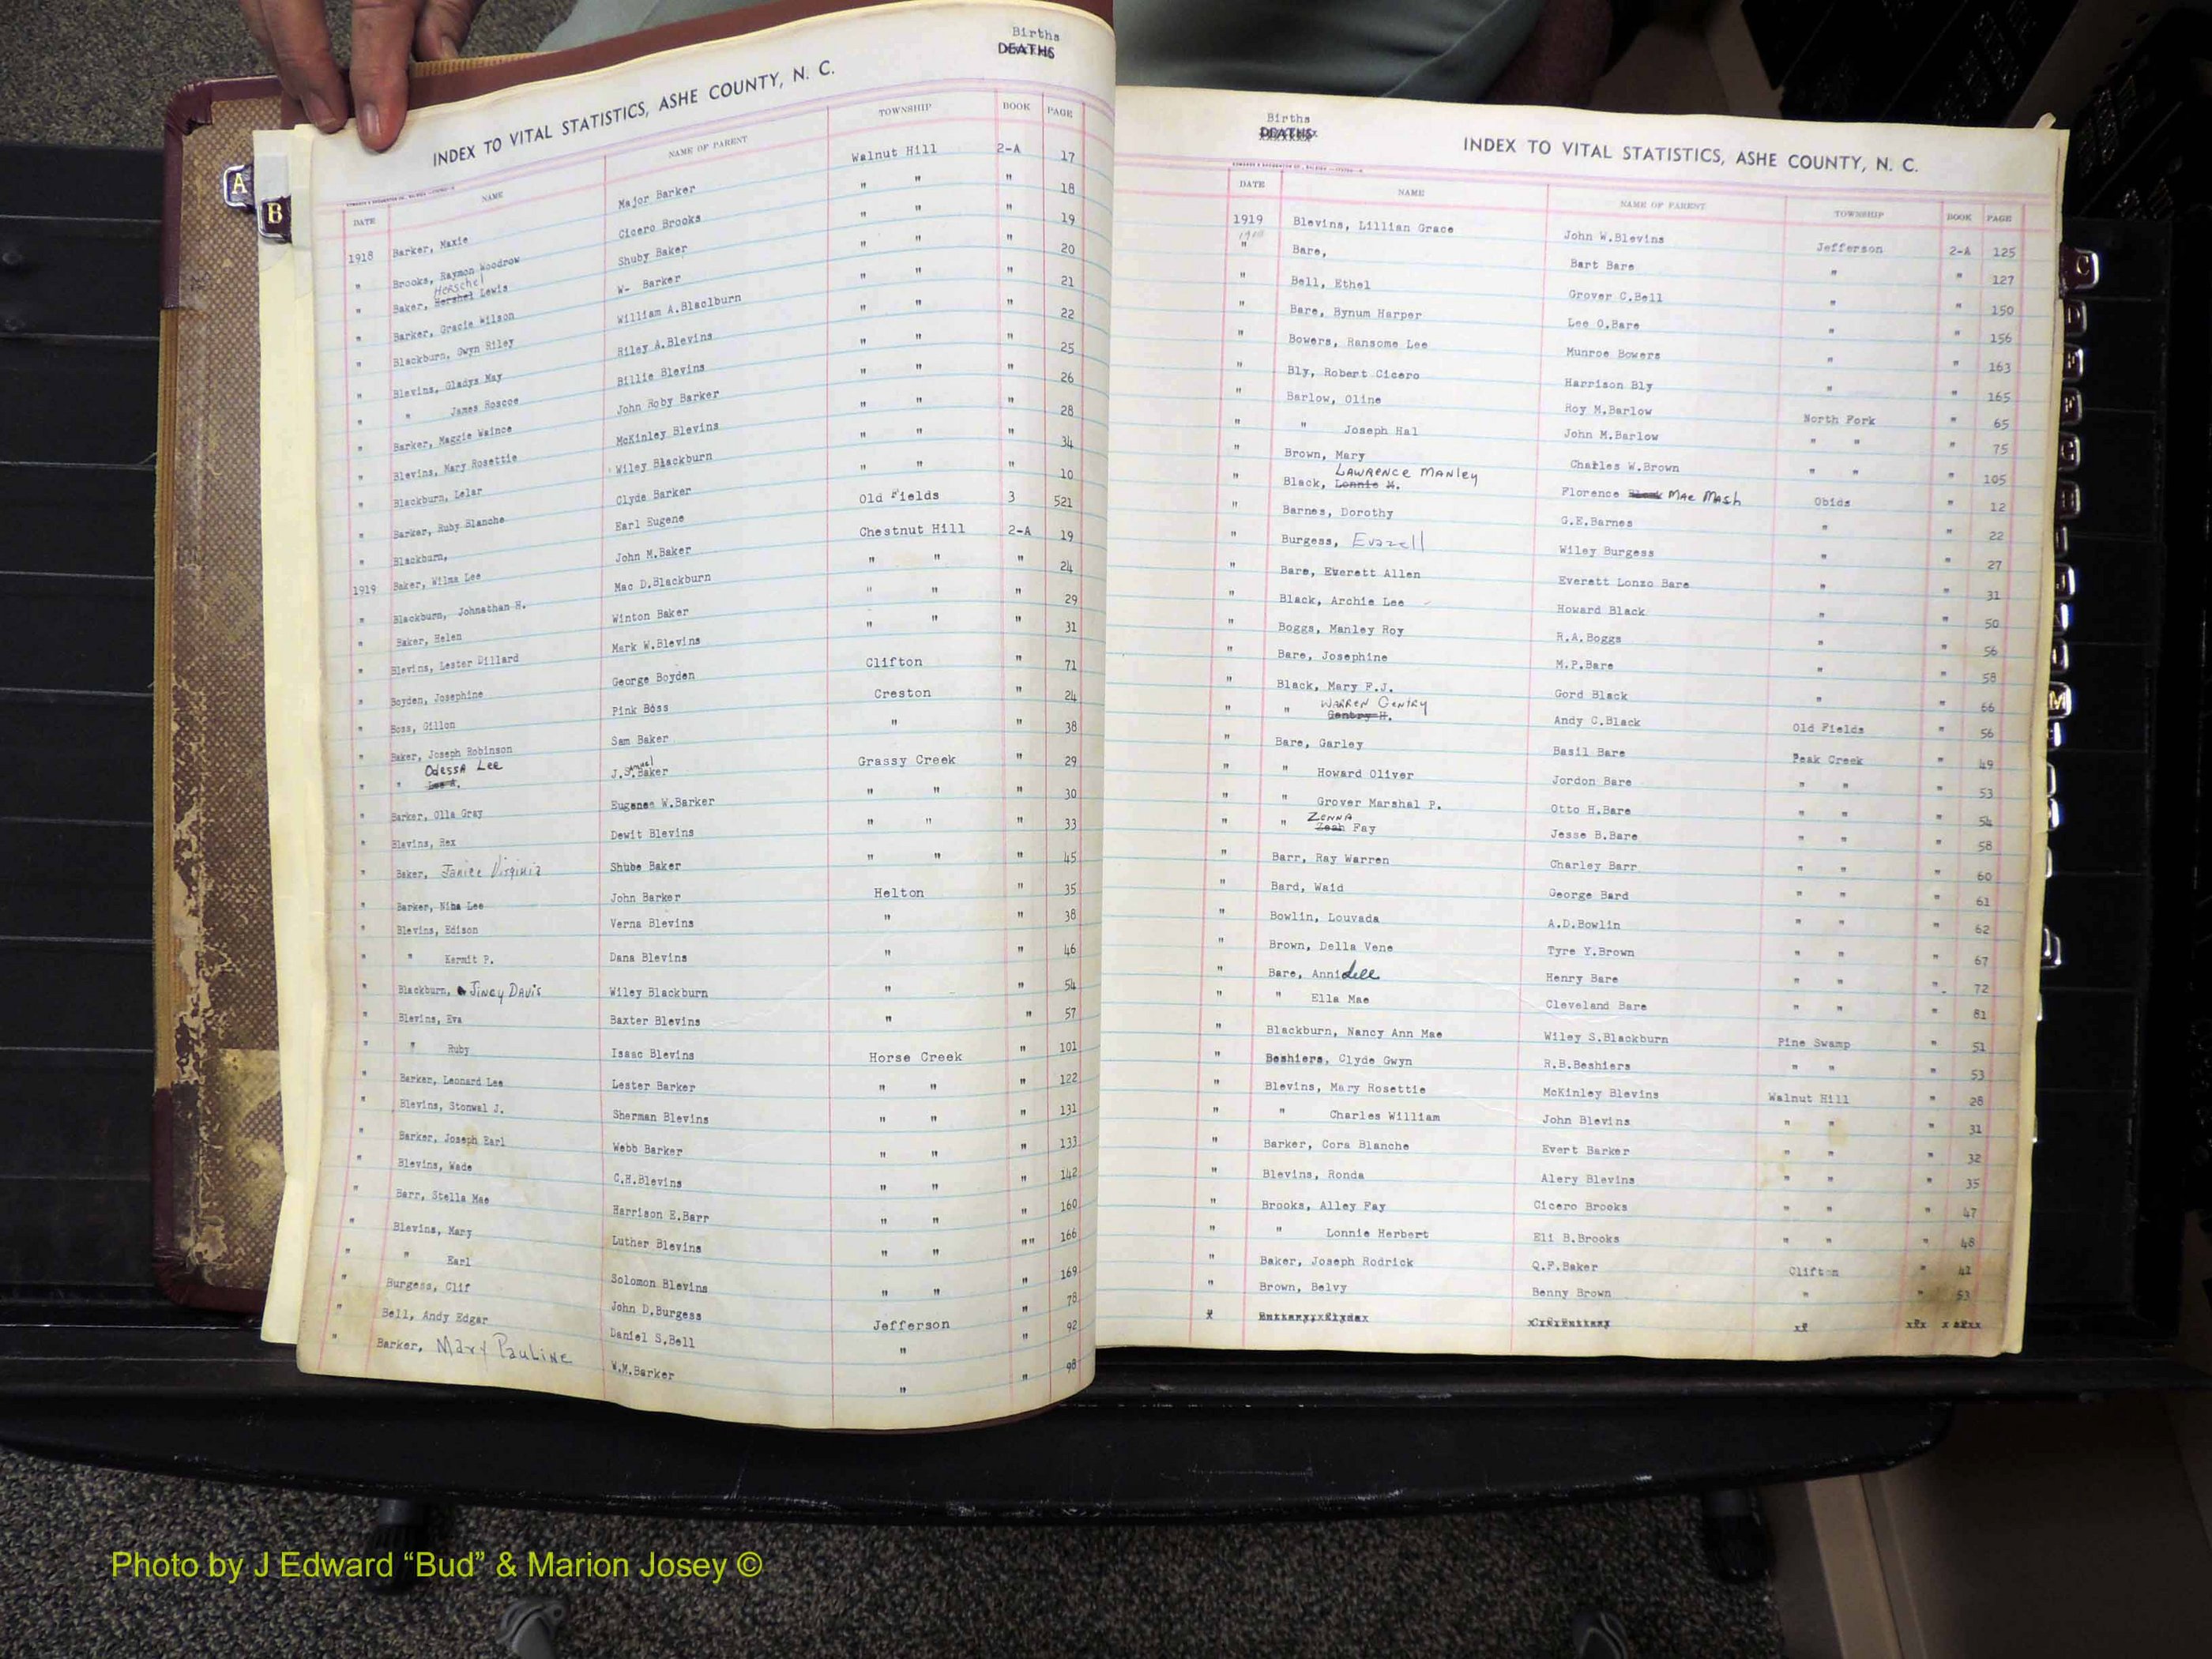 Births
DEATHS
INDEX TO VITAL STATISTICS, ASHE COUNTY, N. C.
DATE NAME NAME OF PARENT TOWNSHIP BOOK PAGE
1918 Barker, Maxie Major Barker Walnut Hill 2-A 17
" Brooks, Raymon Woodrow Cicero Brooks " " " 18
" Baker, Hershel Herschel Lewis Shuby Baker " " " 19
" Barker, Gracie Wilson W- Barker " " " 20
" Blackburn, Gwyn Riley William A.Blaclburn " " " 21
" Blevins, Gladys May Riley A.Blevins " " " 22
" " James Roscoe Billie Blevins " " " 25
" Barker, Maggie Waince John Roby Barker " " " 26
" Blevins, Mary Rosettie McKinley Blevins " " " 28
" Blackburn, Lelar Wiley Blackburn " " " 34
" Barker, Ruby Blanche Clyde Barker " " " 10
" Blackburn, Earl Eugene Old Fields 3 521
1919 Baker, Wilma Lee John M.Baker Chestnut Hill 2-A 19
" Blackburn, Johnathan H. Mac D.Blackburn " " " 24
" Baker, Helen Winton Baker " " " 29
" Blevins, Lester Dillard Mark W.Blevins " " " 31
" Boyden, Josephine George Boyden Clifton " 71
" Boss, Gillon Pink Boss Creston " 24
" Baker, Joseph Robinson Sam Baker " " 38
" " Odessa Lee J.Samuel Baker Grassy Creek " 29
" Barker, Olla Gray Eugenee W.Barker " " " 30
" Blevins, Rex Dewit Blevins " " " 33
" Baker, Janice Virginia Shube Baker " " " 45
" Barker, Nina Lee John Barker Helton " 35
" Blevins, Edison Verna Blevins " " 38
" " Kermit P. Dana Blevins " " 46
" Blackburn, Jincy Davis Wiley Blackburn " " 54
" Blevins, Eva Baxter Blevins " " 57
" " Ruby Isaac Blevins Horse Creek " 101
" Barker, Leonard Lee Lester Barker " " " 122
" Blevins, Stonwal J. Sherman Blevins " " " 131
" Barker, Joseph Earl Webb Barker " " " 133
" Blevins, Wade C.H.Blevins " " " 142
" Barr, Stella Mae Harrison E.Barr " " " 160
" Blevins, Mary Luther Blevins " " "" 166
" " Earl Solomon Blevins " " " 169
" Burgess, Clif John D.Burgess Jefferson " 78
" Bell, Andy Edgar Daniel S.Bell " " 92
" Barker, Mary Pauline W.M.Barker " " 98
Births
DEATHS
INDEX TO VITAL STATISTICS, ASHE COUNTY, N. C.
DATE NAME NAME OF PARENT TOWNSHIP BOOK PAGE
1919 Blevins, Lillian Grace John W.Blevins Jefferson 2-A 125
" Bare, Bart Bare " " 127
" Bell, Ethel Grover C.Bell " " 150
" Bare, Bynum Harper Lee O.Bare " " 156
" Bowers, Ransome Lee Munroe Bowers " " 163
" Bly, Robert Cicero Harrison Bly " " 165
" Barlow, Oline Roy M.Barlow North Fork " 65
" " Joseph Hal John M.Barlow " " " 75
" Brown, Mary Charles W.Brown " " " 105
" Black, Lonnie M. LAWRENCE MANley Florence MAe MAsh Obids " 12
" Barnes, Dorothy G.E.Barnes " " 22
" Burgess, Evazell Wiley Burgess " " 27
" Bare, Everett Allen Everett Lonzo Bare " " 31
" Black, Archie Lee Howard Black " " 50
" Boggs, Manley Roy R.A.Boggs " " 56
" Bare, Josephine M.P.Bare " " 58
" Black, Mary F.J. Gord Black " " 66
" " Gentry H. WARREN GENTRY Andy C.Black Old Fields " 56
" Bare, Garley Basil Bare Peak Creek " 49
" " Howard Oliver Jordon Bare " " " 53
" " Grover Marshal P. Otto H.Bare " " " 54
" " Zeah ZENNA Fay Jesse B.Bare " " " 58
" Barr, Ray Warren Charley Barr " " " 60
" Bard, Waid George Bard " " " 61
" Bowlin, Louvada A.D.Bowlin " " " 62
" Brown, Della Vene Tyre Y.Brown " " " 67
" Bare, Annidell Henry Bare " " " 72
" " Ella Mae Cleveland Bare " " " 81
" Blackburn, Nancy Ann Mae Wiley S.Blackburn Pine Swamp " 51
" Beshiers, Clyde Gwyn R.B.Beshiers " " " 53
" Blevins, Mary Rosettie McKinley Blevins Walnut Hill " 28
" " Charles William John Blevins " " " 31
" Barker, Cora Blanche Evert Barker " " " 32
" Blevins, Ronda Alery Blevins " " " 35
" Brooks, Alley Fay Cicero Brooks " " " 47
" " Lonnie Herbert Eli B.Brooks " " " 48
" Baker, Joseph Rodrick Q.F.Baker Clifton " 41
" Brown, Belvy Benny Brown " " 53
A
B
C
D
E
F
G
M
Photo by J Edward “Bud” & Marion Josey ©